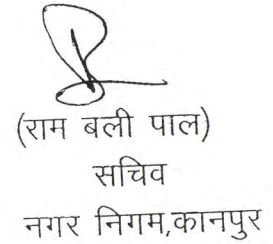 (राम बली पाल)
सचिव
नगर निगम,कानपुर